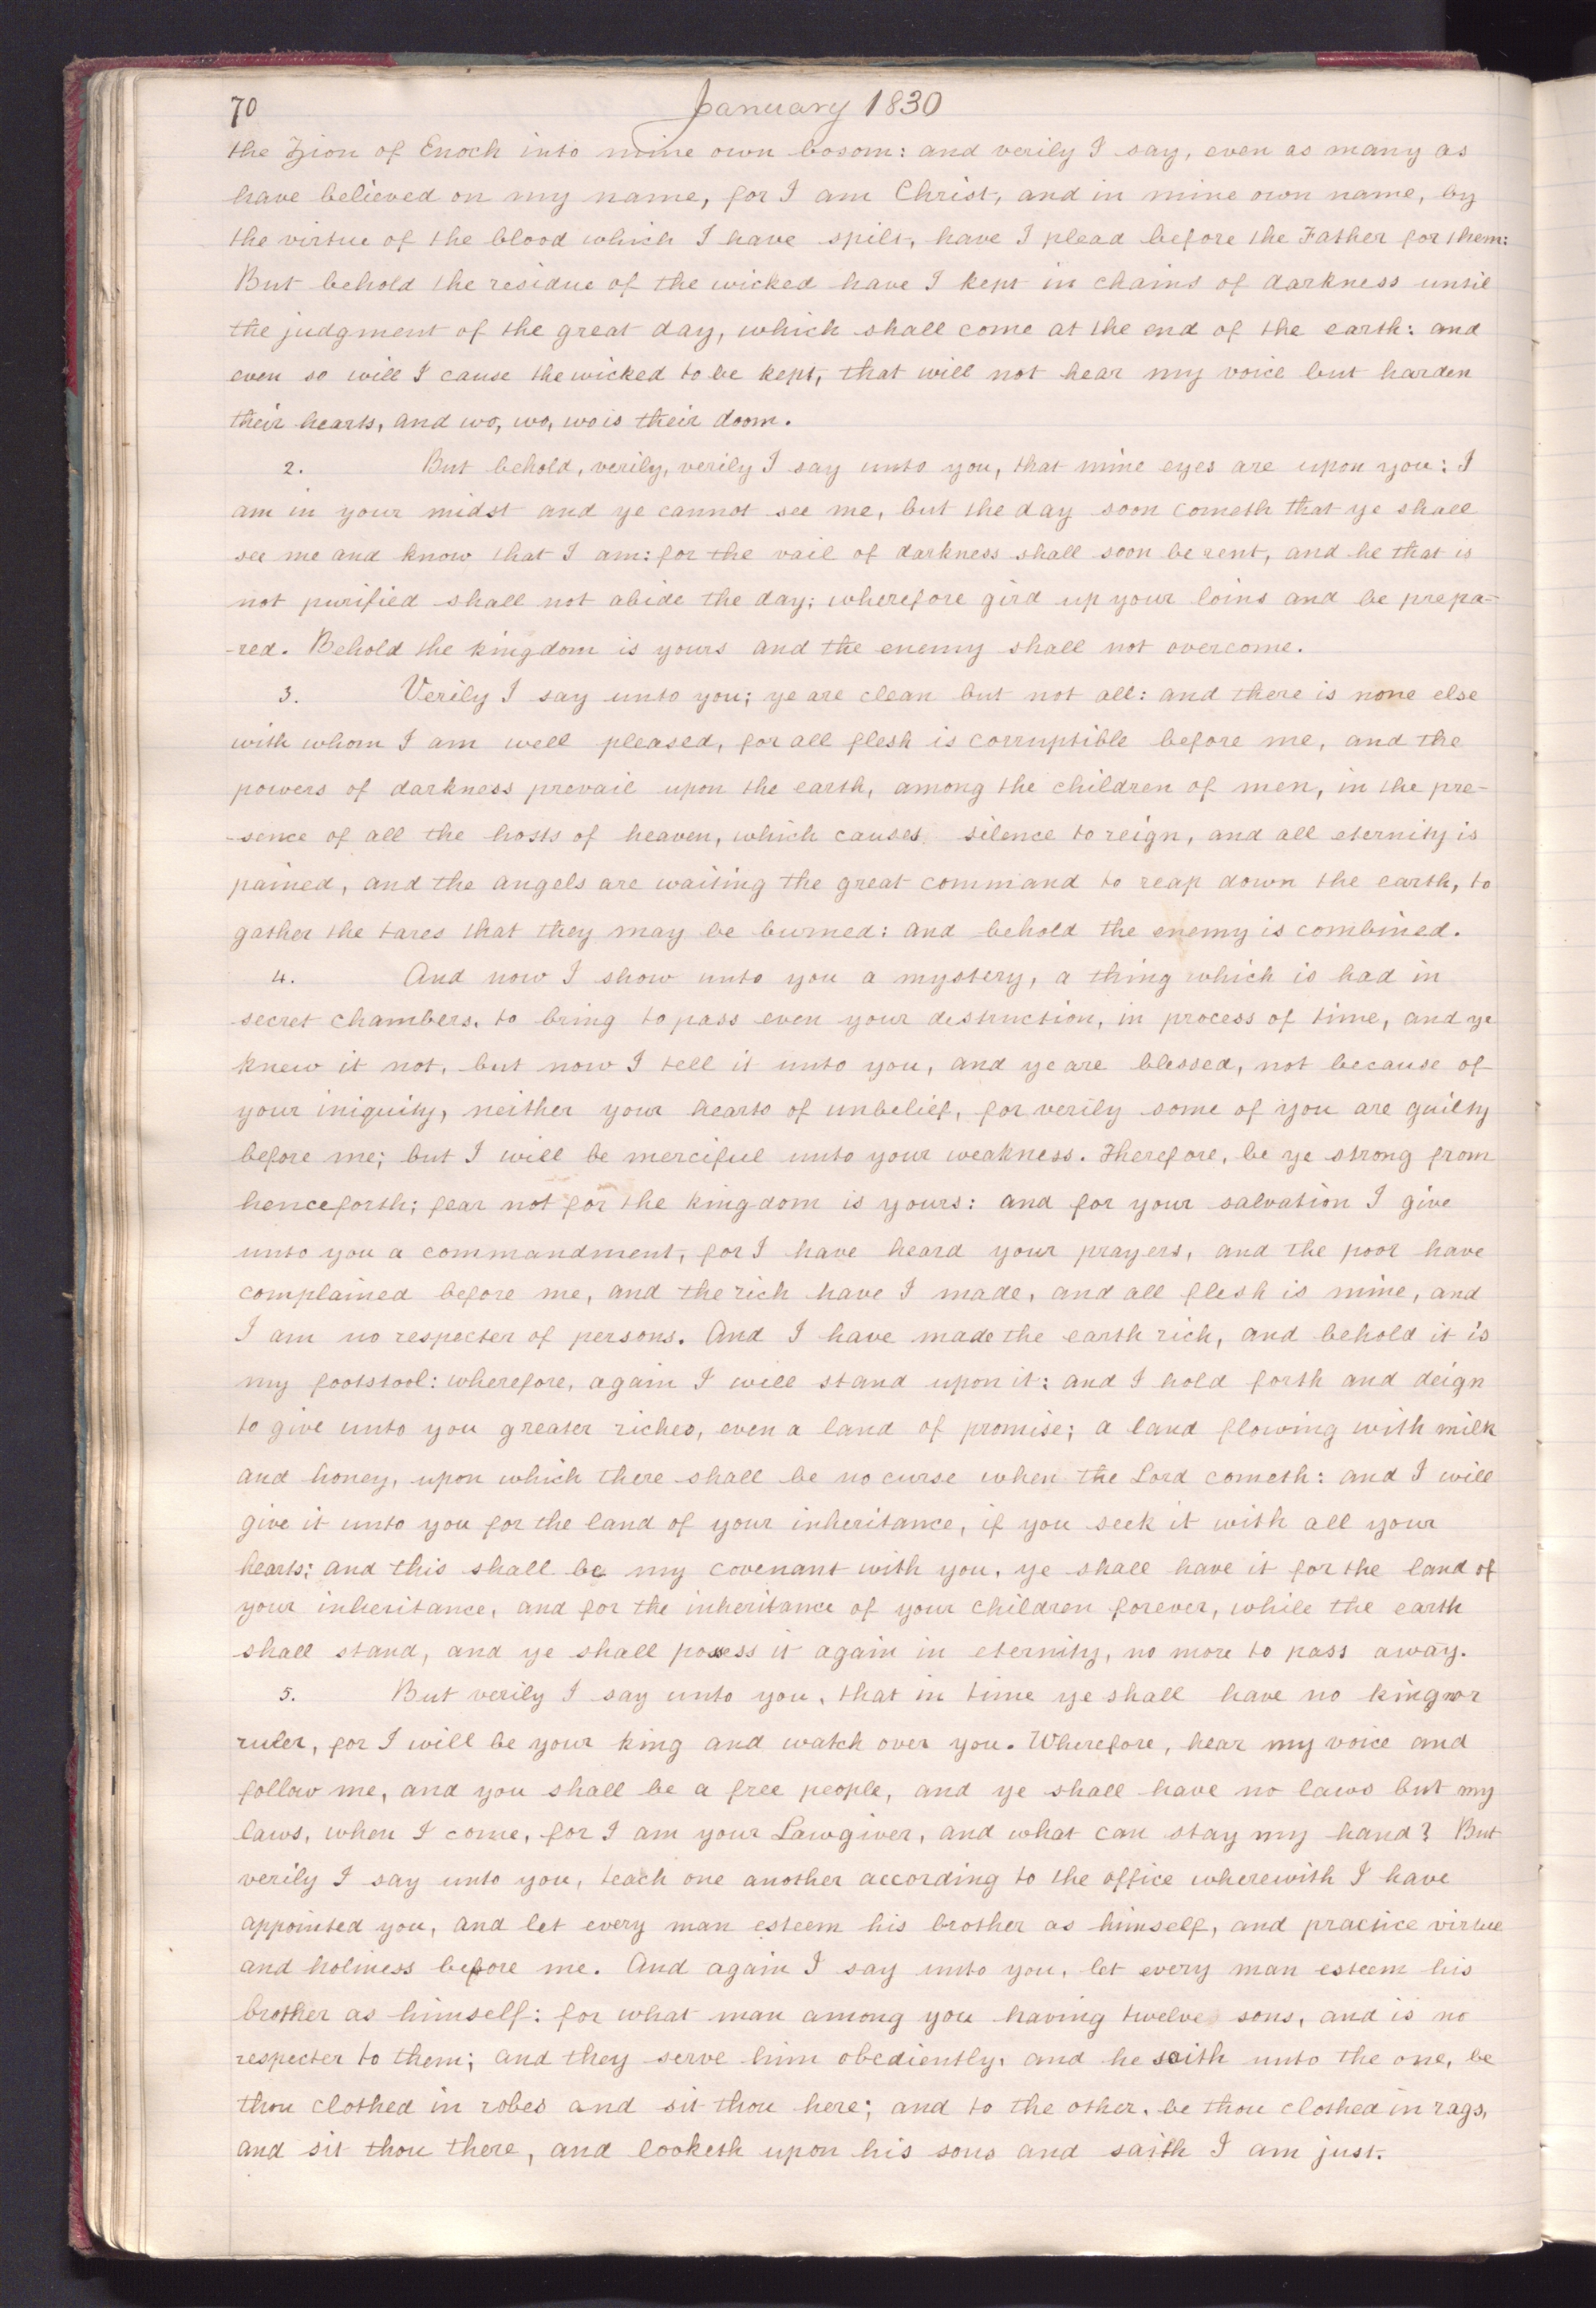 70
January 1830
the Zion of Enoch into mine own bosom: and verily I say, even as many as
have believed on my name, for I am Christ, and in mine own name, by
the virtue of the blood which I have spilt, have I plead before the Father for them:
But behold the residue of the wicked have I kept in chains of darkness until
the judgment of the great day, which shall come at the end of the earth: and
even so will I cause the wicked to be kept, that will not hear my voice but harden
their hearts, and wo, wo, wo is their doom.
2. But behold, verily, verily I say unto you, that mine eyes are upon you: I
am in your midst and ye cannot see me, but the day soon cometh that ye shall
see me and know that I am: for the vail of darkness shall soon be rent, and he that is
not purified shall not abide the day; wherefore gird up your loins and be prepa=
-red. Behold the kingdom is yours and the enemy shall not overcome.
3. Verily I say unto you; ye are clean but not all: and there is none else
with whom I am well pleased, for all flesh is corruptible before me, and the
powers of darkness prevail upon the earth, among the children of men, in the pre-
-sence of all the hosts of heaven, which causes silence to reign, and all eternity is
pained, and the angels are waiting the great command to reap down the earth, to
gather the tares that they may be burned: and behold the enemy is combined.
4. And now I show unto you a mystery, a thing which is had in
secret chambers, to bring to pass even your destruction, in process of time, and ye
knew it not, but now I tell it unto you, and ye are blessed, not because of
your iniquity, neither your hearts of unbelief, for verily some of you are guilty
before me; but I will be merciful unto your weakness. Therefore, be ye strong from
henceforth; fear not for the kingdom is yours: and for your salvation I give
unto you a commandment, for I have heard your prayers, and the poor have
complained before me, and the rich have I made, and all flesh is mine, and
I am no respecter of persons. And I have made the earth rich, and behold it is
my footstool: wherefore, again I will stand upon it: and I hold forth and deign
to give unto you greater riches, even a land of promise; a land flowing with milk
and honey, upon which there shall be no curse when the Lord cometh: and I will
give it unto you for the land of your inheritance, if you seek it with all your
hearts: and this shall be my covenant with you, ye shall have it for the land of
your inheritance, and for the inheritance of your children forever, while the earth
shall stand, and ye shall possess it again in eternity, no more to pass away.
5. But verily I say unto you, that in time ye shall have no king nor
ruler, for I will be your king and watch over you. Wherefore, hear my voice and
follow me, and you shall be a free people, and ye shall have no laws but my
laws, when I come, for I am your Lawgiver, and what can stay my hand? But
verily I say unto you, teach one another according to the office wherewith I have
appointed you, and let every man esteem his brother as himself, and practice virtue
and holiness before me. And again I say unto you, let every man esteem his
brother as himself: for what man among you having twelve sons, and is no
respecter to them; and they serve him obediently, and he saith unto the one, be
thou clothed in robes and sit thou here; and to the other, be thou clothed in rags,
and sit thou there, and looketh upon his sons and saith I am just.